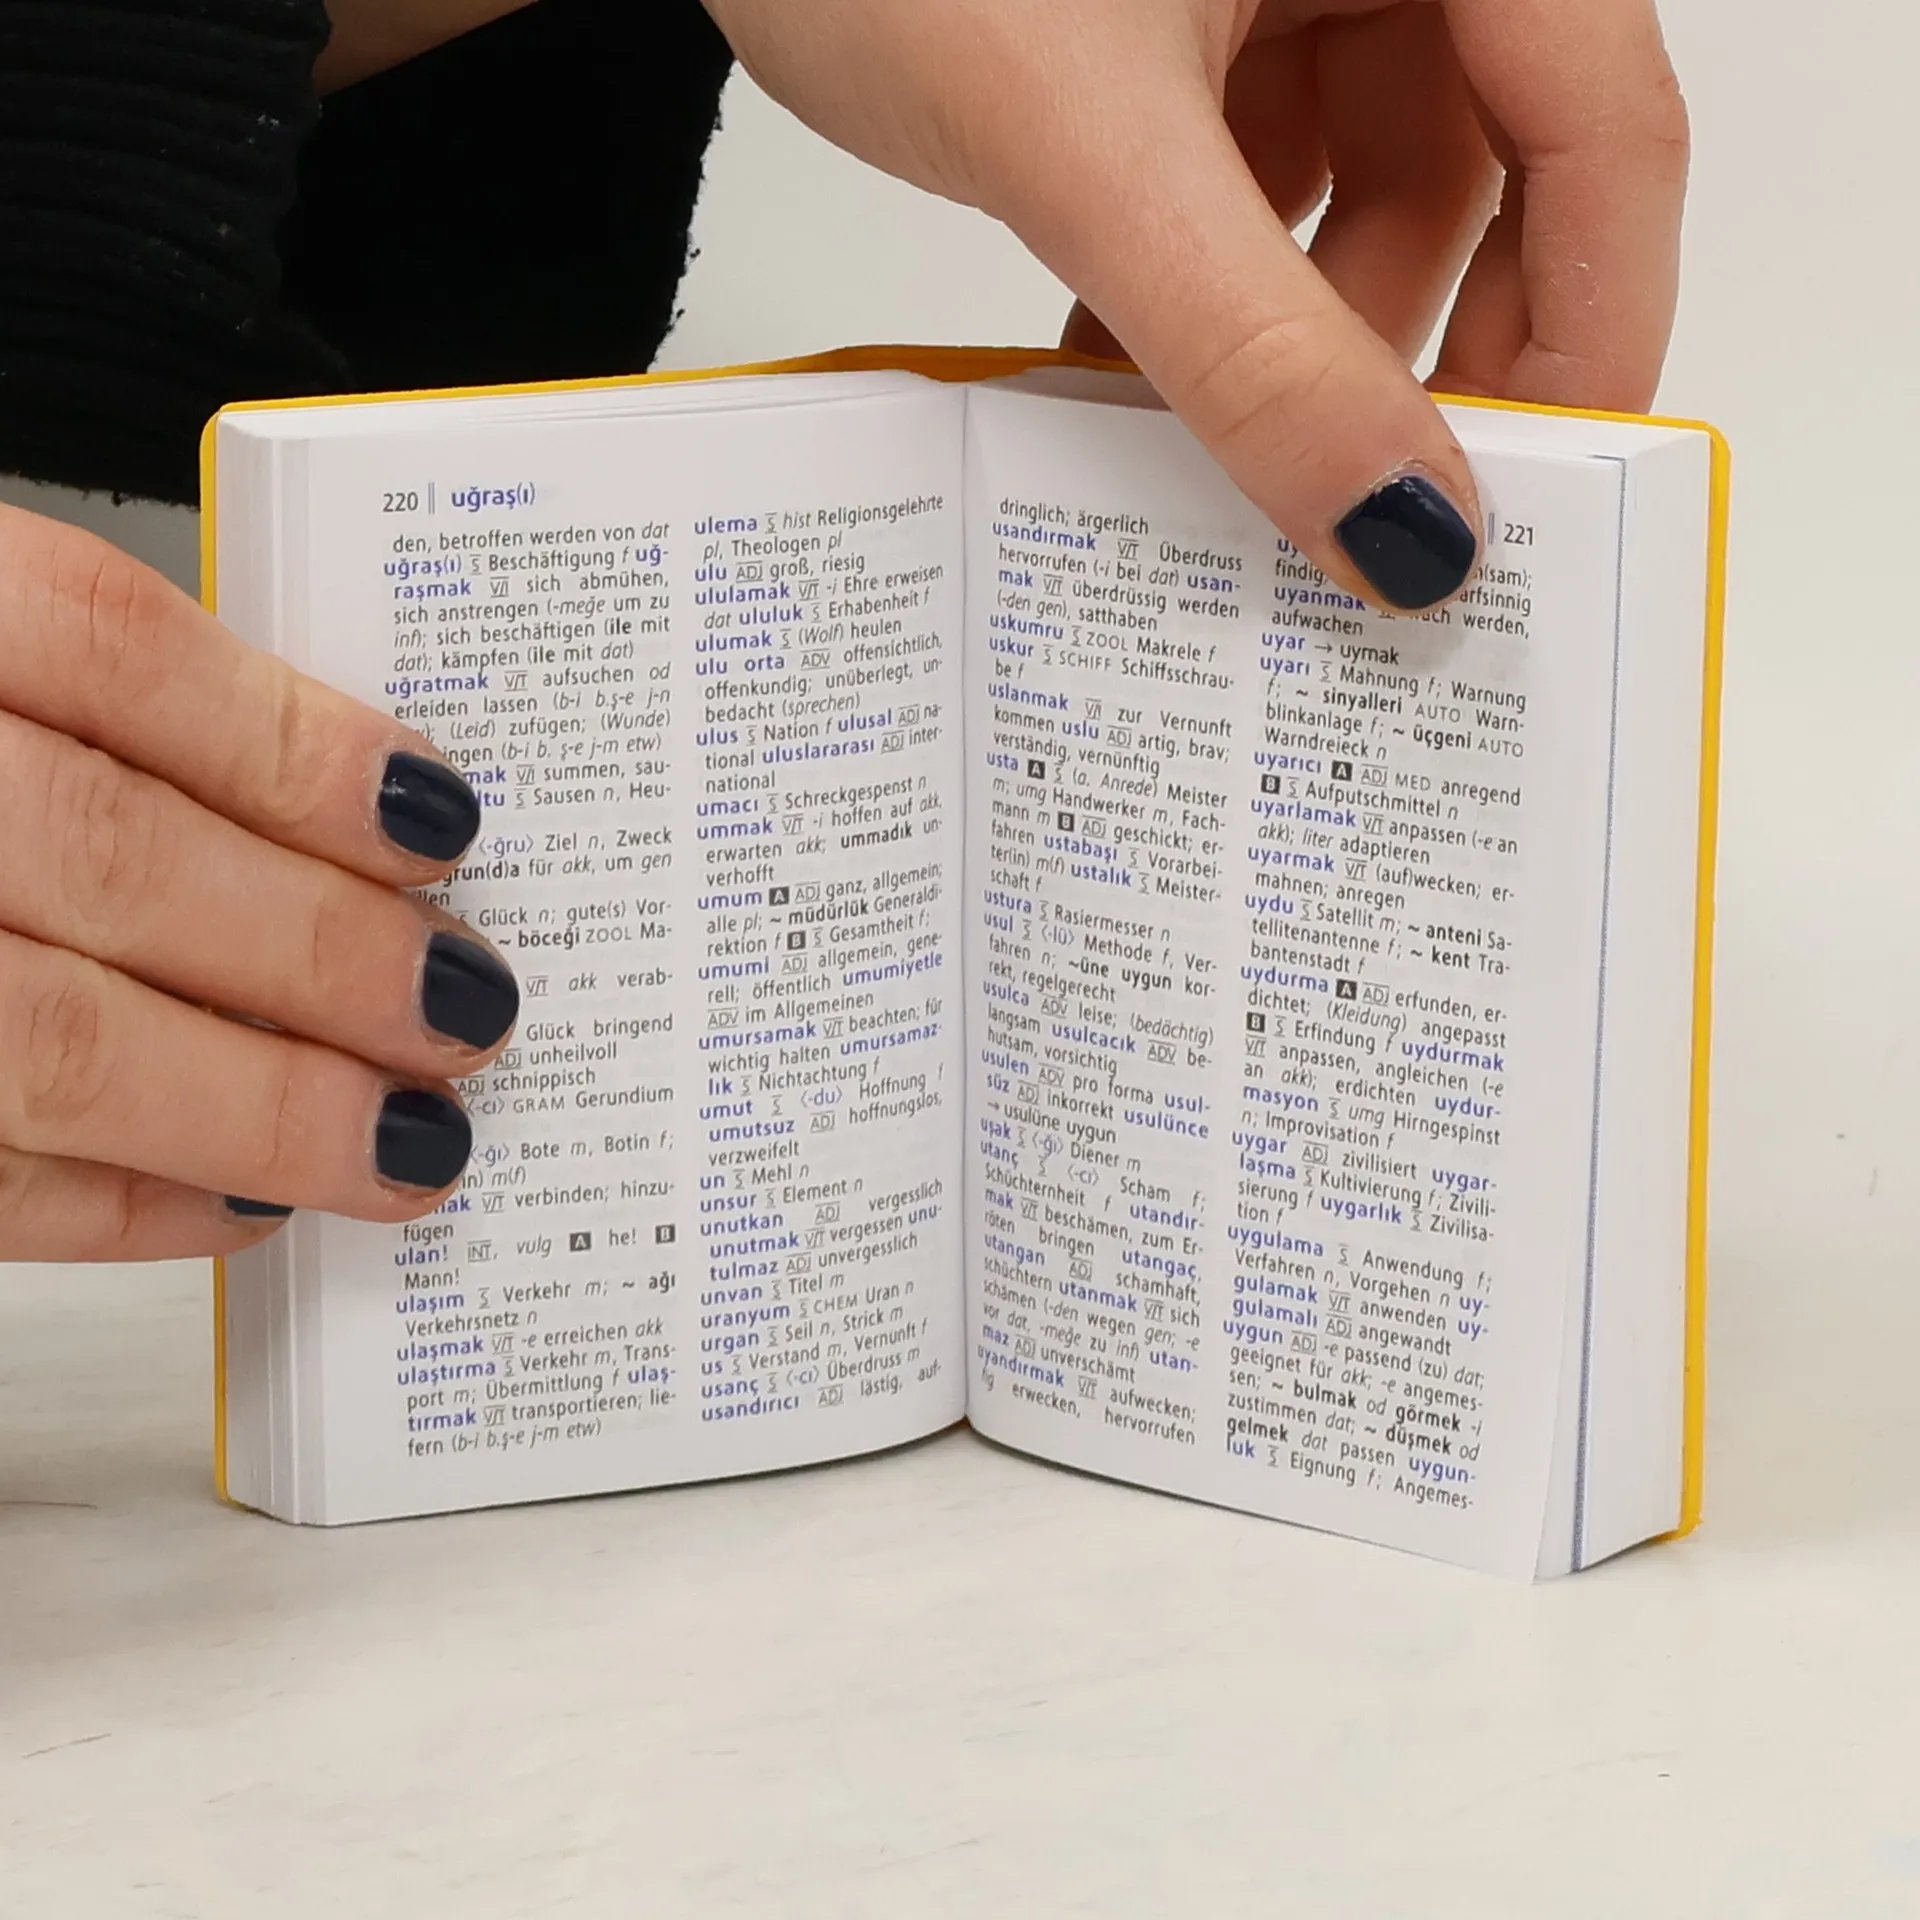 220 ‖ uğraş(ı)
den, betroffen werden von dat
uğraş(ı) S Beschäftigung f uğ-
raşmak V/I sich abmühen,
sich anstrengen (-meğe um zu
inf); sich beschäftigen (ile mit
dat); kämpfen (ile mit dat)
uğratmak V/T aufsuchen od
erleiden lassen (b-i b.ş-e j-n
(Leid) zufügen; (Wunde)
(b-i b. ş-e j-m etw)
V/I summen, sau-
S Sausen n, Heu-
⟨-ğru⟩ Ziel n, Zweck
für akk, um gen
Glück n; gute(s) Vor-
~ böceği ZOOL Ma-
V/T akk verab-
Glück bringend
ADJ unheilvoll
ADJ schnippisch
⟨-cı⟩ GRAM Gerundium
⟨-ğı⟩ Bote m, Botin f;
m(f)
V/T verbinden; hinzu-
fügen
ulan! INT, vulg A he! B
Mann!
ulaşım S Verkehr m; ~ ağı
Verkehrsnetz n
ulaşmak V/T -e erreichen akk
ulaştırma S Verkehr m, Trans-
port m; Übermittlung f ulaş-
tırmak V/T transportieren; lie-
fern (b-i b.ş-e j-m etw)
ulema S hist Religionsgelehrte
pl, Theologen pl
ulu ADJ groß, riesig
ululamak V/T -i Ehre erweisen
dat ululuk S Erhabenheit f
ulumak S (Wolf) heulen
ulu orta ADV offensichtlich,
offenkundig; unüberlegt, un-
bedacht (sprechen)
ulus S Nation f ulusal ADJ na-
tional uluslararası ADJ inter-
national
umacı S Schreckgespenst n
ummak V/T -i hoffen auf akk,
erwarten akk; ummadık un-
verhofft
umum A ADJ ganz, allgemein;
alle pl; ~ müdürlük Generaldi-
rektion f B S Gesamtheit f;
umumi ADJ allgemein, gene-
rell; öffentlich umumiyetle
ADV im Allgemeinen
umursamak V/T beachten; für
wichtig halten umursamaz-
lık S Nichtachtung f
umut S ⟨-du⟩ Hoffnung f
umutsuz ADJ hoffnungslos,
verzweifelt
un S Mehl n
unsur S Element n
unutkan ADJ vergesslich
unutmak V/T vergessen unu-
tulmaz ADJ unvergesslich
unvan S Titel m
uranyum S CHEM Uran n
urgan S Seil n, Strick m
us S Verstand m, Vernunft f
usanç S ⟨-cı⟩ Überdruss m
usandırıcı ADJ lästig, auf-
‖ 221
dringlich; ärgerlich
usandırmak V/T Überdruss
hervorrufen (-i bei dat) usan-
mak V/T überdrüssig werden
(-den gen), satthaben
uskumru S ZOOL Makrele f
uskur S SCHIFF Schiffsschrau-
be f
uslanmak V/I zur Vernunft
kommen uslu ADJ artig, brav;
verständig, vernünftig
usta A S (a. Anrede) Meister
m; umg Handwerker m, Fach-
mann m B ADJ geschickt; er-
fahren ustabaşı S Vorarbei-
ter(in) m(f) ustalık S Meister-
schaft f
ustura S Rasiermesser n
usul S ⟨-lü⟩ Methode f, Ver-
fahren n; ~üne uygun kor-
rekt, regelgerecht
usulca ADV leise; (bedächtig)
langsam usulcacık ADV be-
hutsam, vorsichtig
usulen ADV pro forma usul-
süz ADJ inkorrekt usulünce
→ usulüne uygun
uşak S ⟨-ğı⟩ Diener m
utanç S ⟨-cı⟩ Scham f;
Schüchternheit f utandır-
mak V/T beschämen, zum Er-
röten bringen utangaç,
utangan ADJ schamhaft,
schüchtern utanmak V/T sich
schämen (-den wegen gen; -e
vor dat, -meğe zu inf) utan-
maz ADJ unverschämt
uyandırmak V/T aufwecken;
fig erwecken, hervorrufen
findig,
uyanmak werden,
aufwachen
uyar → uymak
uyarı S Mahnung f; Warnung
f; ~ sinyalleri AUTO Warn-
blinkanlage f; ~ üçgeni AUTO
Warndreieck n
uyarıcı A ADJ MED anregend
B S Aufputschmittel n
uyarlamak V/T anpassen (-e an
akk); liter adaptieren
uyarmak V/T (auf)wecken; er-
mahnen; anregen
uydu S Satellit m; ~ anteni Sa-
tellitenantenne f; ~ kent Tra-
bantenstadt f
uydurma A ADJ erfunden, er-
dichtet; (Kleidung) angepasst
B S Erfindung f uydurmak
V/T anpassen, angleichen (-e
an akk); erdichten uydur-
masyon S umg Hirngespinst
n; Improvisation f
uygar ADJ zivilisiert uygar-
laşma S Kultivierung f; Zivili-
sierung f uygarlık S Zivilisa-
tion f
uygulama S Anwendung f;
Verfahren n, Vorgehen n uy-
gulamak V/T anwenden uy-
gulamalı ADJ angewandt
uygun ADJ -e passend (zu) dat;
geeignet für akk; -e angemes-
sen; ~ bulmak od görmek -i
zustimmen dat; ~ düşmek od
gelmek dat passen uygun-
luk S Eignung f; Angemes-